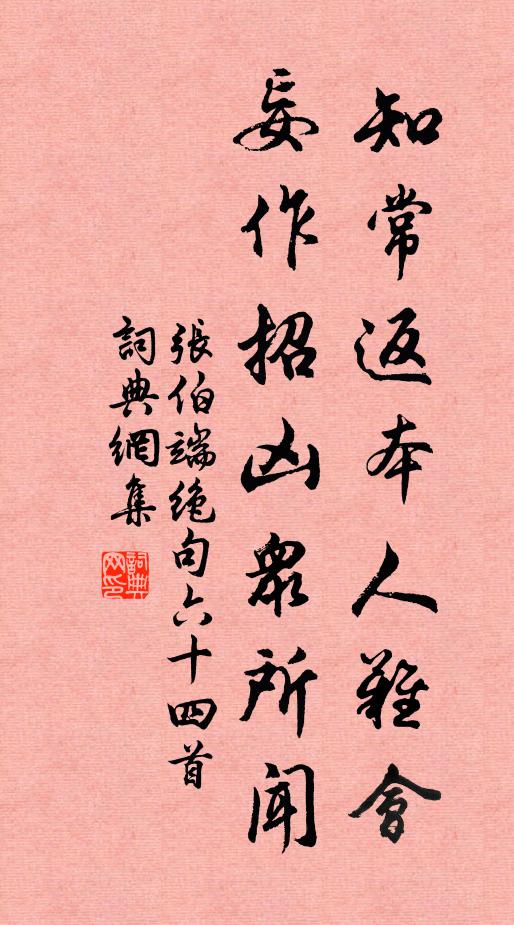 知常返本人難會
妄作招凶眾所聞
張伯端絕句六十四首
詞典網集
詞典网印